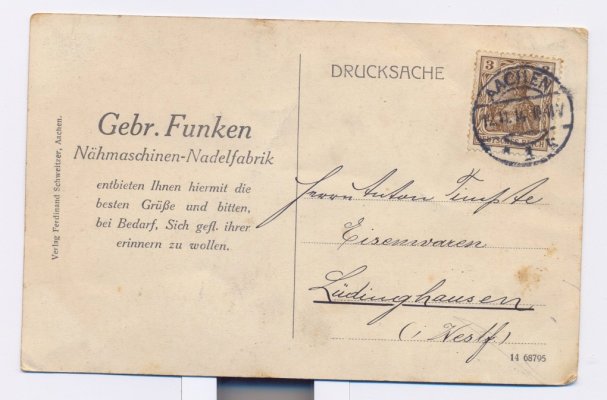 DRUCKSACHE
3
AACHEN
1
DEUTSCHES REICH
Gebr. Funken
Nähmaschinen-Nadelfabrik
entbieten Ihnen hiermit die
besten Grüße und bitten,
bei Bedarf, Sich gefl. ihrer
erinnern zu wollen.
Verlag Ferdinand Schweitzer, Aachen.
Herrn Anton
Eisenwaren
Lüdinghausen
(i/Westf.)
14 68795